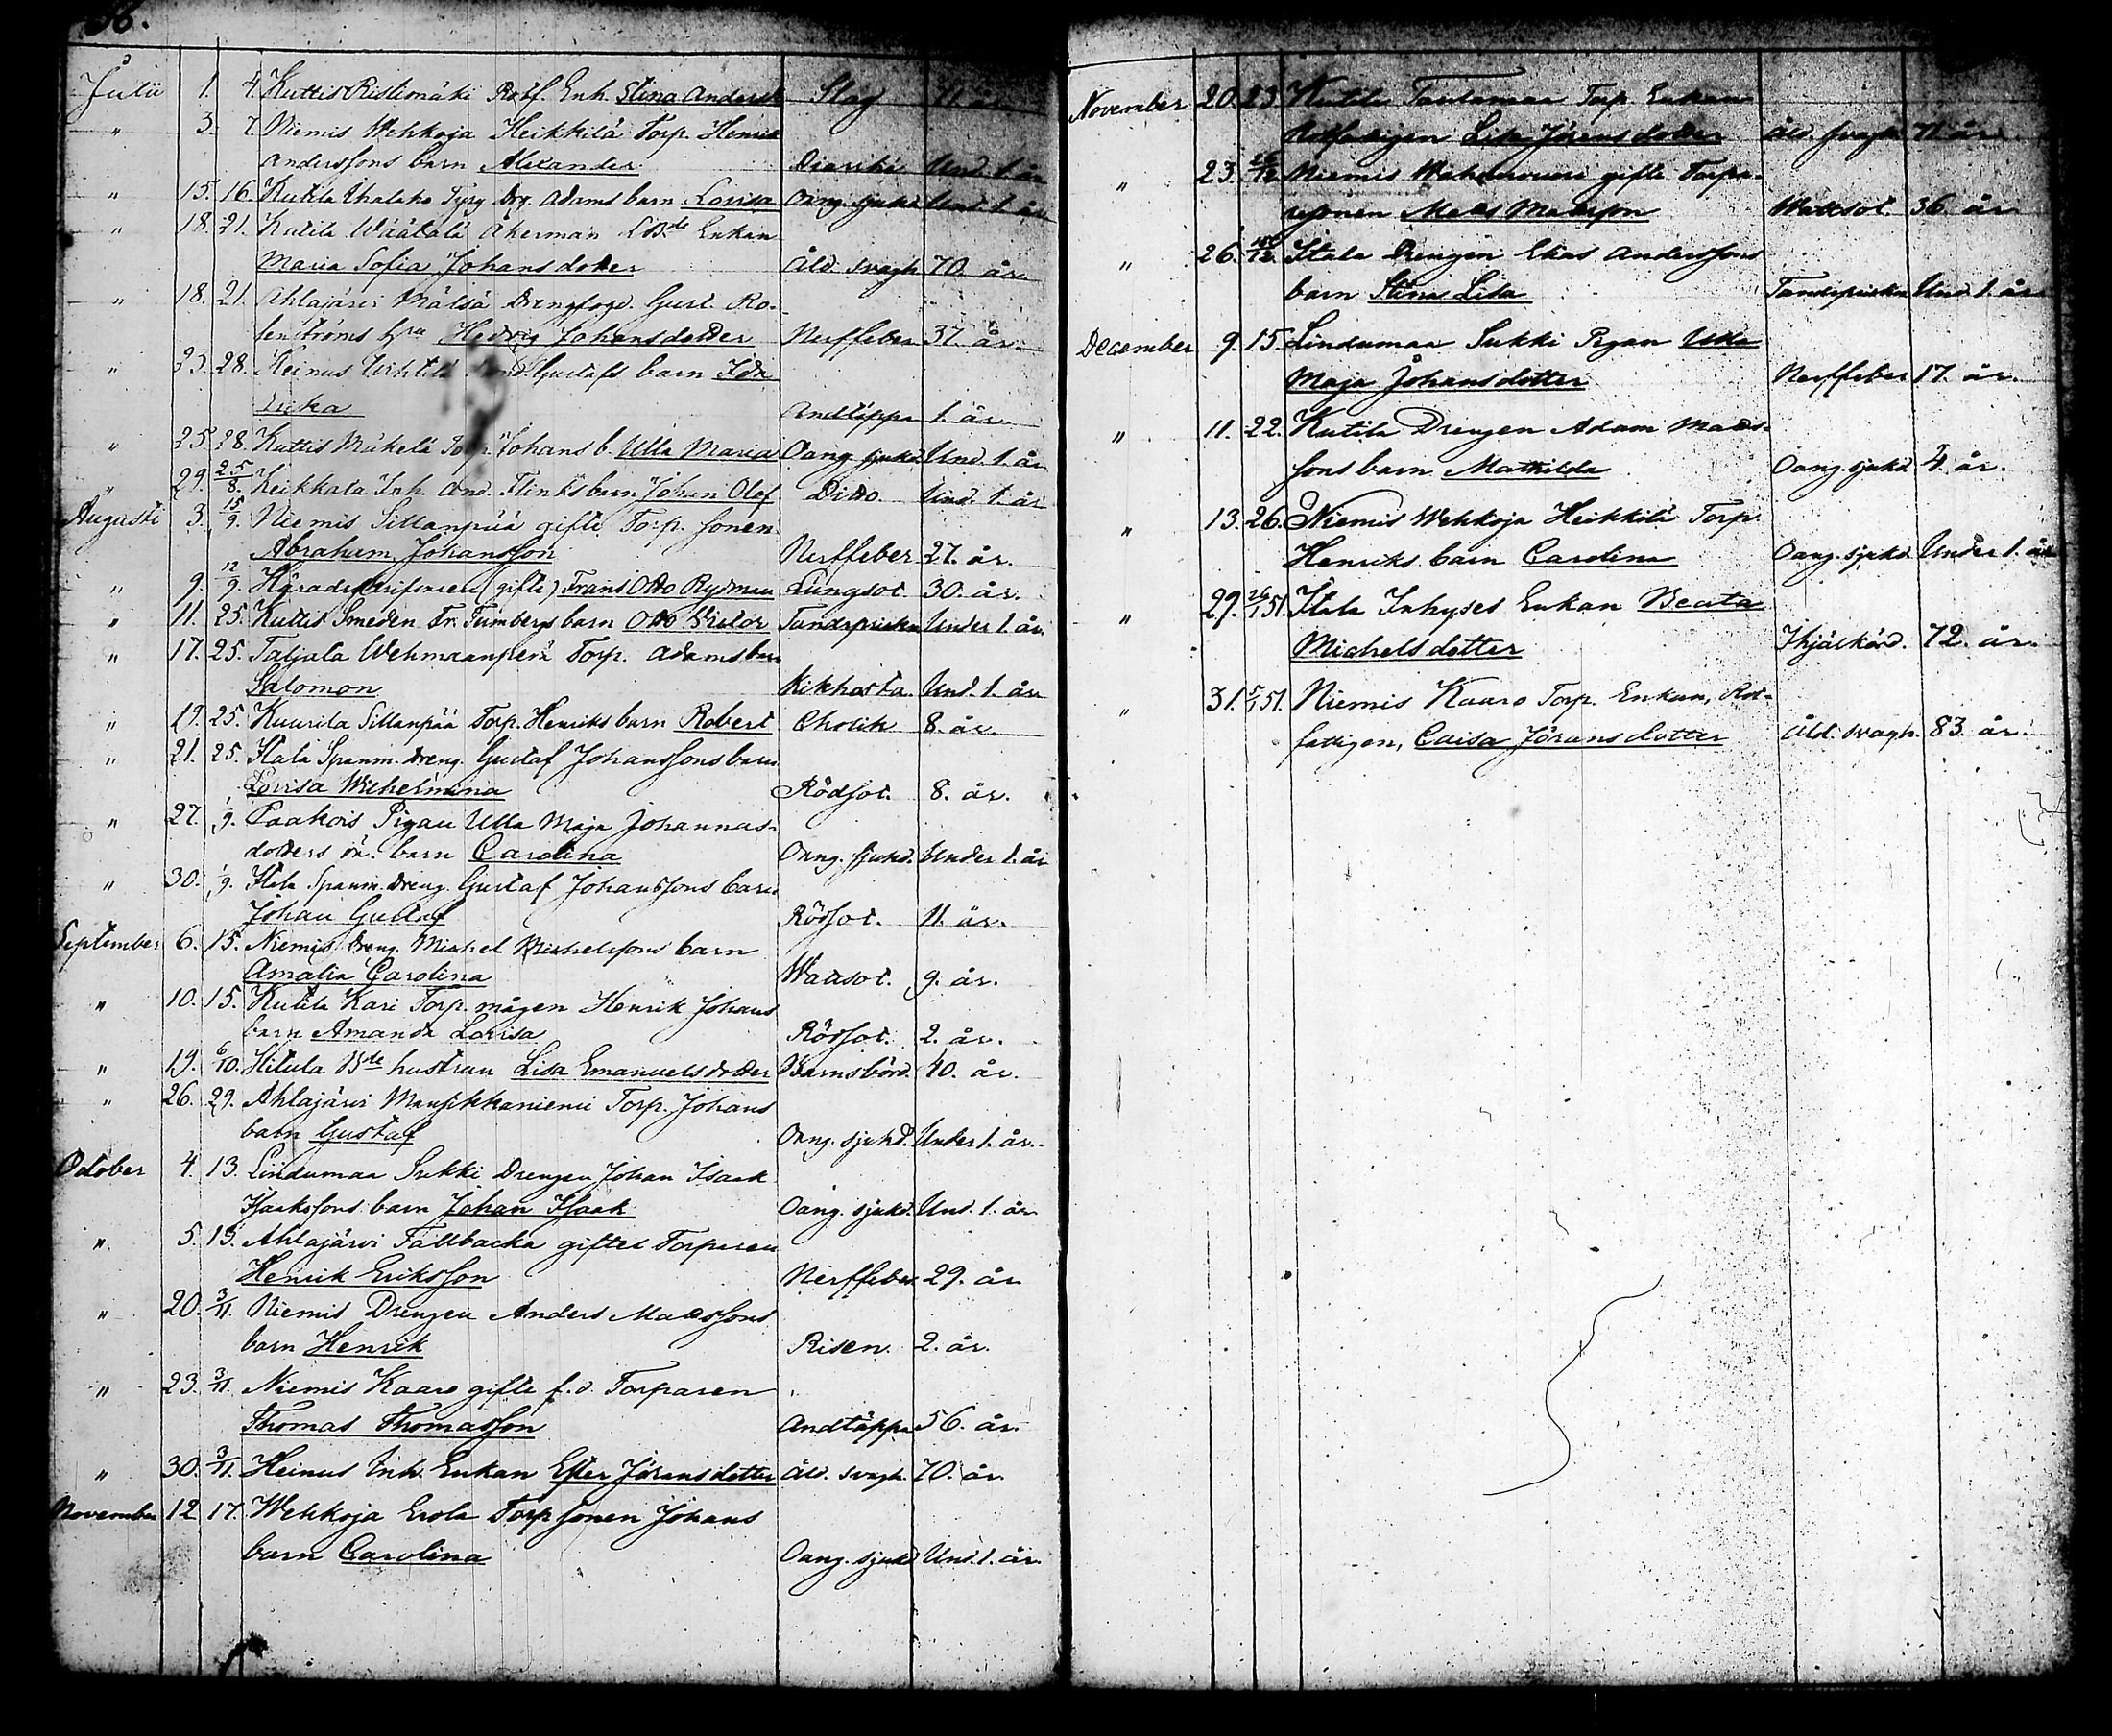 36.
Julii 1. 4. Kuttis Ristimäki Rotf. Enk. Stina Andersd. Slag 71 år
" 3. 7. Niemis Wehkoja Heikkilä Torp. Henrik
Anderssons barn Alexander Diarrhé Und. 1. år
" 15. 16. Kutila Uhalaho Tjrg Drg. Adams barn Lovisa Oang. sjukd. Und. 1. år
" 18. 21. Kutila Wäätälä Åkerman Enkan
Maria Sofia Johansdotter Åld. svagh. 70. år
" 18. 21. Ahlajärvi Mälsä Drengfogd. Gust. Ro-
senströms hru Hedvig Johansdotter Nerffeber 37. år.
" 23. 28. Heinus Uhtilä Gustafs barn Ida
Erika Andtäppa 1. år.
" 25. 28. Kuttis Mäkelä Torp. Johans b. Ulla Maria Oang. sjukd. Und. 1. år
" 29. 25/8. Keikkala Inh. And. Flinks barn Johan Olof Ditto Und. 1. år
Augusti 3. 15/9. Niemis Sillanpää gifte Torp. sonen
Abraham Johansson Nerffeber 27. år.
" 9. 12/9. Häradsskrifvaren (gifte) Frans Otto Rydman Lungsot 30. år.
" 11. 25. Kuttis Smeden Fr. Tumbergs barn Otto Victor Tandsprickn. Under 1. år.
" 17. 25. Taljala Wehmaanperä Torp. Adams barn
Salomon Kikhosta. Und. 1. år
" 19. 25. Kuurila Sillanpää Torp. Henriks barn Robert Cholik 8. år.
" 21. 25. Itala Spanm. Dreng. Gustaf Johanssons barn
Lovisa Wilhelmina Rödsot. 8. år.
" 27. 1/9. Paakois Pigan Ulla Maja Johannas-
dotters oä. barn Carolina Oang. sjukd. Under 1. år
" 30. 1/9. Itala Spanm. Dreng. Gustaf Johanssons barn
Johan Gustaf Rödsot. 11. år.
September 6. 15. Niemis Dreng. Michel Michelssons barn
Amalia Carolina Wattsot. 9. år.
" 10. 15. Kutila Kari Torp. mågen Henrik Johans
barn Amanda Lovisa Rödsot. 2. år.
" 19. 6/10. Hitula Bde hustrun Lisa Emanuelsdotter Barnsbörd. 40. år.
" 26. 29. Ahlajärvi Mansikkaniemi Torp. Johans
barn Gustaf Oang. sjukd. Under 1. år.
October 4. 13. Lindumaa Sukki Drengen Johan Isaak
Isaakssons barn Johan Isaak Oang. sjukd. Und. 1. år
" 5. 13. Ahlajärvi Fällbacka giftet Torparen
Henrik Eriksson Nerffeber 29. år
" 20. 3/11. Niemis Drengen Anders Matssons
barn Henrik Risen. 2. år.
" 23. 3/11. Niemis Kaaro gifte f.d. Torparen
Thomas Thomasson Andtäppa 56. år.
" 30. 3/11. Heinus Inh. Enkan Ester Jöransdotter Åld. svagh. 70. år.
November 12. 17. Wehkoja Erola Torp sonen Johans
barn Carolina Oang. sjukd Und. 1. år.
November 20. 23. Kutila Torp. Enkan
Rotfattigen Lisa Jöransdotter Åld. svagh. 71. år.
" 23. 26/12 Niemis gifte Torpa-
resonen Mats Matsson Wattsot. 36. år.
" 26. Itala Drengen Elias Anderssons
barn Stina Lisa Tandsprickn. Und. 1. år.
December 9. 15. Lindumaa Sukki Pigan Ulla
Maja Johansdotter Nerffeber 17. år.
" 11. 22. Kutila Drengen Adam Mats-
sons barn Mathilda Oang. sjukd. 4. år.
" 13. 26. Niemis Wehkoja Heikkilä Torp.
Henriks barn Carolina Oang. sjukd. Under 1. år
" 29. 26/1 51. Itala Inhyses Enkan Beata
Michelsdotter Ihjälkörd. 72. år.
" 31. 5/1 51. Niemis Kaaro Torp. Enkan, Rot-
fattigen, Caisa Jöransdotter Åld. svagh. 83. år.